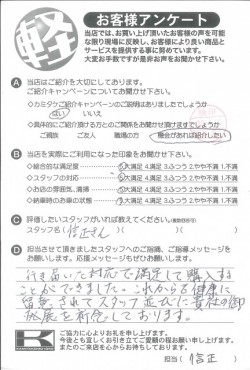 軽
お客様アンケート
当店では、お買い上げ頂いたお客様の声を可能
な限り現場に反映し、お客様により良い商品と
サービスを提供する事に努めています。
大変お手数ですが是非お声をお聞かせ下さい。
A 当店はご紹介を大切にしております。
ご紹介キャンペーンについてお聞かせ下さい。
◇カミタケご紹介キャンペーンのご説明はありましたでしょうか
はい いいえ
◇具体的にご紹介頂ける方との関係をお聞かせ頂けますでしょうか
ご親族 ご友人 職場の方 機会があれば紹介したい
B 当店を実際にご利用になった印象をお聞かせ下さい。
◇総合的な満足度 5大満足 4.満足 3.ふつう 2.やや不満 1.不満
◇スタッフの対応 5大満足 4.満足 3.ふつう 2.やや不満 1.不満
◇お店の雰囲気、清掃 5大満足 4.満足 3.ふつう 2.やや不満 1.不満
◇納車時のお車の状態 5大満足 4.満足 3.ふつう 2.やや不満 1.不満
C 評価したいスタッフがいれば教えてください。(複数回答可)
スタッフ名( 信正さん )
D 担当させて頂きましたスタッフへのご指摘、ご指導メッセージを
お願いします。応援メッセージもぜひお願いします。
行き届いた対応で満足して購入する
ことができました。これからも健康に
留意されてスタッフ並びに貴社の御
発展を祈念しております。
ご協力に心よりお礼を申し上げます。
今後とも宜しくお引き立てご愛顧の程お願い申し上げます。
またのご来店を心からお待ちしております。
担当( 信正 )